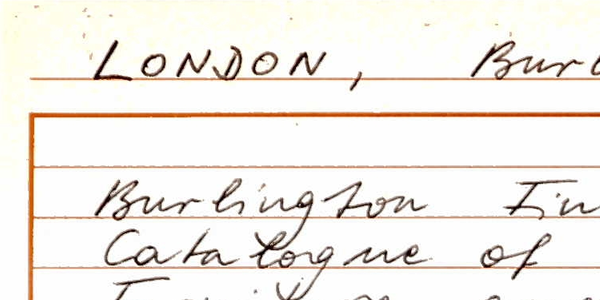 LONDON, Bur
Burlington Fin
Catalogue of